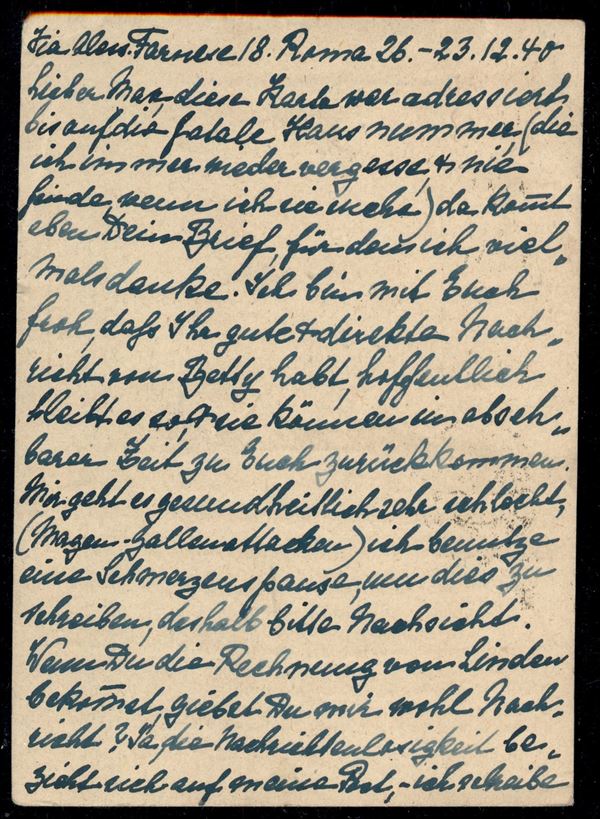 Via Aless. Farnese 18. Roma 26. - 23.12.40
Lieber Max, diese Karte war adressiert,
bis auf die fatale Hausnummer, (die
ich immer wieder vergesse, + nie
finde, wenn ich sie suche) da kom̅t
eben Dein Brief, für den ich viel„
mals danke. Ich bin mit Euch
froh, daß Ihr gute + direkte Nach„
richt von Betty habt, hoffentlich
bleibt es so, + sie können in abseh„
barer Zeit zu Euch zurückkommen.
Mir geht es gesundheitlich sehr schlecht,
(Magen-Gallenattacken) ich benutze
eine Schmerzenspause, um dies zu
schreiben, deshalb bitte Nachsicht.
Wenn Du die Rechnung von Linden
bekom̅st, giebst Du mir wohl Nach„
richt? Ja, die Nachrichtenlosigkeit be„
zieht sich auf meine Post, - ich schreibe